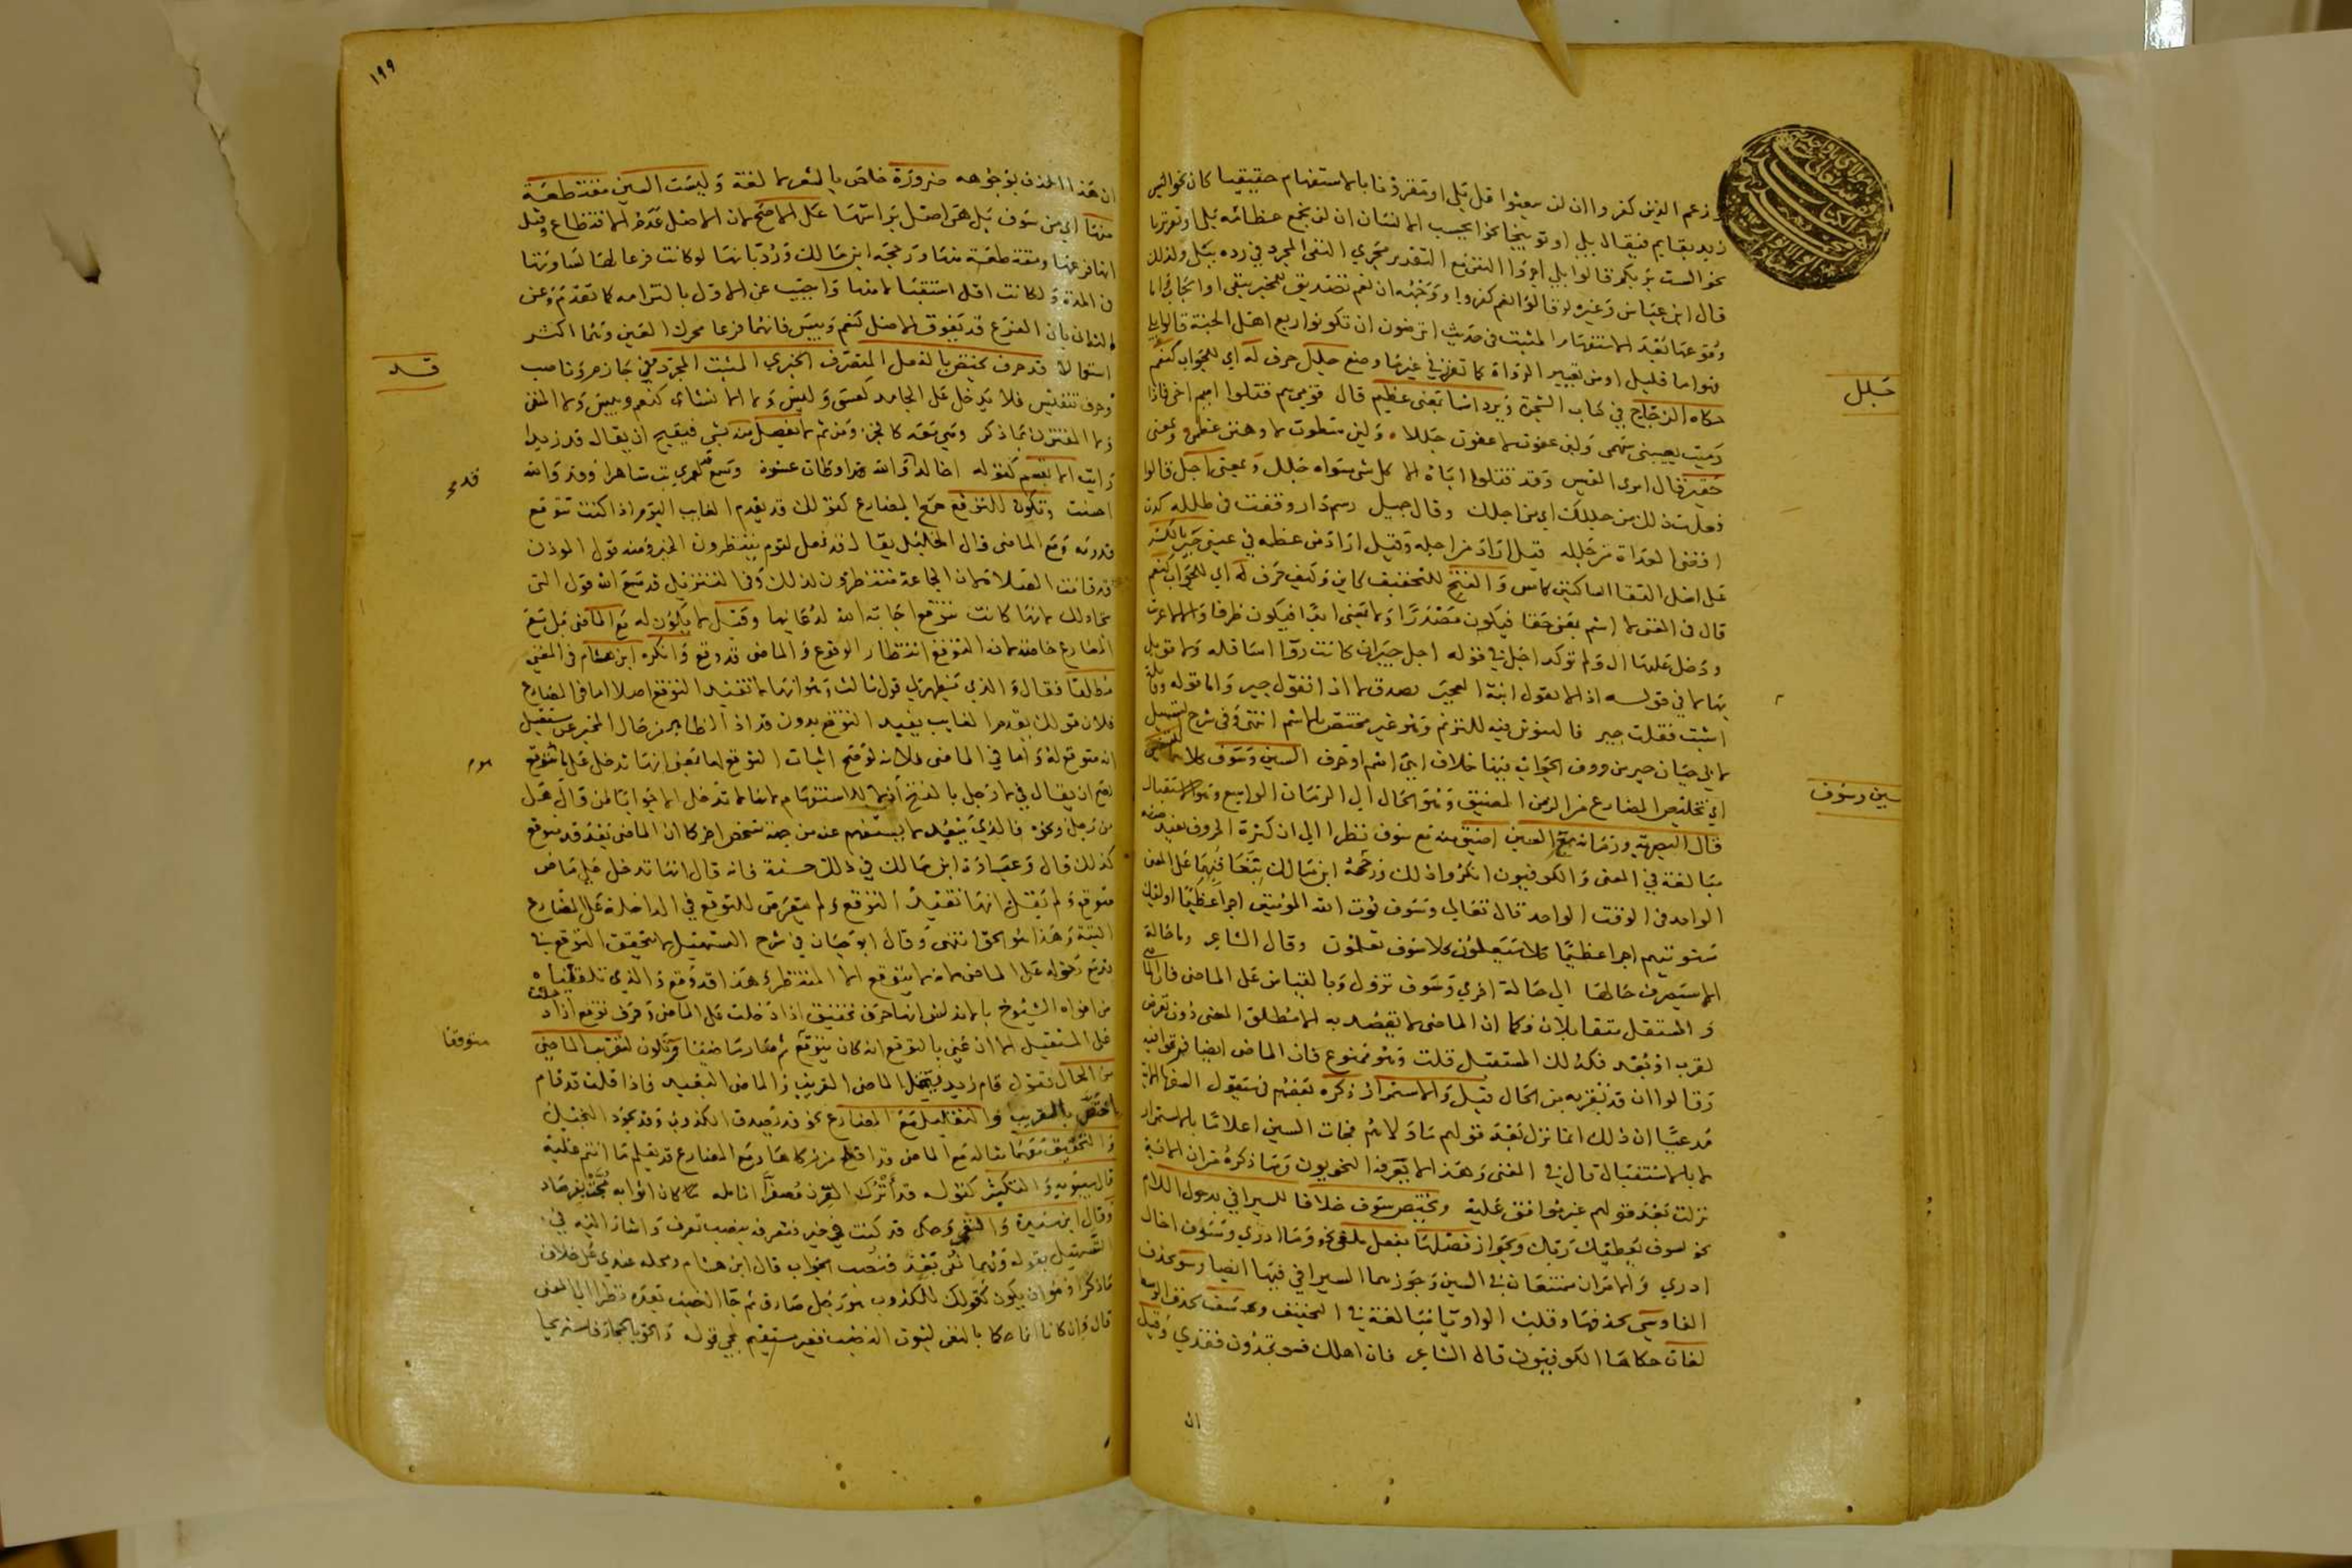 زعم الذين كفروا ان لن يبعثوا قل بلى او مقرونا بالاستفهام حقيقيا كان نحو اليس
زيد بقايم فيقال بلى او توبيخيا نحو ايحسب الانسان ان لن نجمع عظامه بلى او تقريريا
نحو الست بربكم قالوا بلى اجروا النفي مع التقرير مجرى النفي المجرد في رده ببلى ولذلك
قال ابن عباس وغيره لو قالوا نعم كفروا ووجهه ان نعم تصديق للمخبر بنفي او ايجاب واما
وقوعها بعد الاستفهام المثبت في حديث اترضون ان تكونوا ربع اهل الجنة قالوا بلى
فهو اما قليل او من تغيير الرواة كما تقرر في غير ما وضع جلل حرف له اي للجواب كنعم
حكاه الزجاج في كتاب الشجرة ويرد اسما بمعنى عظيم قال قومي هم قتلوا اميم اخي فاذا
رميت يصيبني سهمي ولئن عفوت لاعفون جللا ولئن سطوت لاوهنن عظمي وبمعنى
حقير قال امرء القيس وقد قتلوا اباه الا كل شي سواه جلل وبمعنى اجل قالوا
فعلت ذلك من جللك اي من اجلك وقال جميل رسم دار وقفت في طلله كدت
اقضي الغداة من جلله قيل اراد من اجله وقيل اراد من عظمه في عيني جير بالكسر
على اصل التقا الساكنين كامس والفتح للتخفيف كاين وكيف حرف له اي للجواب كنعم
قال في المغنى لا اسم بمعنى حقا فيكون مصدرا ولا بمعنى ابدا فيكون ظرفا والا لاعربت
ودخل عليها ال ولم توكد اجل في قوله اجل جير ان كانت رواء اسافله ولا قوبل
بها لا في قوله اذا تقول لا ابنة العجير تصدق لا اذا تقول جير واما قوله وقايلة
اسيت فقلت جير فالتنوين فيه للترنم وهو غير مختص بالاسم انتهى وفي شرح التسهيل
لابي حيان جير من حروف الجواب فيها خلاف اهي اسم او حرف السين وسوف كلاهما للتنفيس
اي تخليص المضارع من الزمن الضيق وهو الحال الى الزمان الواسع وهو الاستقبال
قال البصرية وزمانه مع السين اضيق منه مع سوف نظرا الى ان كثرة الحروف تفيد
مبالغة في المعنى والكوفيون انكروا ذلك ورجحه ابن مالك بتعاقبهما على المعنى
الواحد في الوقت الواحد قال تعالى وسوف يوت الله المؤمنين اجرا عظيما اوليك
سنوتيهم اجرا عظيما كلا سيعلمون كلا سوف تعلمون وقال الشاعر وما حالة
الا سيصرف حالها الى حالة اخرى وسوف تزول وبالقياس على الماضي فان الماضي
والمستقبل متقابلان وكما ان الماضي لا يقصد به الا مطلق المعنى دون تعرض
لقرب او بعد فكذلك المستقبل قلت وهو ممنوع فان الماضي ايضا فرقوا فيه
وقالوا ان قد تقربه من الحال قيل والاستمرار ذكره بعضهم في سيقول السفها
مدعيا ان ذلك انما نزل بعد قولهم ما ولاهم فجات السين اعلاما بالاستمرار
لا بالاستقبال قال في المغنى وهذا لا يعرفه النحويون وما ذكره من ان الاية
نزلت بعد قولهم غير موافق عليه ويختص سوف خلافا للسيرافي بدخول اللام
نحو لسوف يعطيك ربك وبجواز فصلها بفعل ملغى نحو وما ادري وسوف اخال
ادري والامران ممتنعان في السين وجوزهما السيرافي فيها ايضا وسو بحذف
الفا وسي بحذفها وقلب الواو يا مبالغة في التخفيف وسف بحذف الوسط
لغات حكاها الكوفيون قال الشاعر فان اهلك فسو تجدون فقدي وقيل
ان
جلل
سين وسوف
١٩٩
ان هذا الحذف بوجوهه ضرورة خاص بالشعر لا لغة وليست السين مقتطعة
منها اي من سوف بل هي اصل براسها على الاصح لان الاصل عدم الاقتطاع وقيل
انها فرعها ومقتطعة منها ورجحه ابن مالك ورد بانها لو كانت فرعا لها لساوتها
في المدة ولكانت اقل استقبالا منها واجيب عن الاول بالتزامه كما تقدم وعن
الثاني بان الفرع قد يفوق الاصل كنعم وبيس فانهما فرعا محرك العين وهما اكثر
استعمالا قد حرف يختص بالفعل المتصرف الخبري المثبت المجرد من جازم وناصب
وحرف تنفيس فلا يدخل على الجامد كعسى وليس ولا الانشاي كنعم وبيس ولا المنفي
ولا المقترن بما ذكر وهي معه كالجزء ومن ثم لا يفصل منه بشي فيقبح ان يقال قد زيدا
رايت الا بقسم كقوله اخالد قد والله اوطات عشوة وسمع قد لعمري بت ساهرا وقد والله
احسنت وتكون للتوقع مع المضارع كقولك قد يقدم الغايب اليوم اذا كنت تتوقع
قدومه ومع الماضي قال الخليل يقال قد فعل لقوم ينتظرون الخبر ومنه قول الموذن
قد قامت الصلاة لان الجماعة منتظرون لذلك وفي التنزيل قد سمع الله قول التي
تجادلك لانها كانت تتوقع اجابة الله لدعائها وقيل لا يكون له مع الماضي بل مع
المضارع خاصة لان التوقع انتظار الوقوع والماضي قد وقع وانكره ابن هشام في المغنى
مطلقا فقال والذي يظهر لي قول ثالث وهو انها لا تفيد التوقع اصلا اما في المضارع
فلان قولك يقدم الغايب يفيد التوقع بدون قد اذ الظاهر من حال المخبر عن مستقبل
انه متوقع له واما في الماضي فلانه لو صح اثبات التوقع لها بمعنى انها تدخل على ما يتوقع
لصح ان يقال في لا رجل بالفتح ان لا للاستفهام لانها لا تدخل الا جوابا لمن قال هل
من رجل ونحوه فالذي بعد لا يستفهم عنه من جهة شخص اخر كما ان الماضي بعد قد متوقع
كذلك قال وعبارة ابن مالك في ذلك حسنة فانه قال انها تدخل على ماض
متوقع ولم يقل انها تفيد التوقع ولم يتعرض للتوقع في الداخلة على المضارع
البتة وهذا هو الحق انتهى وقال ابو حيان في شرح التسهيل لا يتحقق التوقع في
قد مع دخوله على الماضي لانه لا يتوقع الا المنتظر وهذا قد وقع والذي تلقفناه
من افواه الشيوخ بالاندلس انها حرف تحقيق اذا دخلت على الماضي وحرف توقع اذا دخلت
على المستقبل الا ان عنى بالتوقع انه كان يتوقع ثم صار ماضيا وتكون لتقريب الماضي
من الحال تقول قام زيد فيحتمل الماضي القريب والماضي البعيد فاذا قلت قد قام
اختص بالقريب والتقليل مع المضارع نحو قد يصدق الكذوب وقد يجود البخيل
والتحقيق معهما مثاله مع الماضي قد افلح من زكاها ومع المضارع قد يعلم ما انتم عليه
قال سيبويه والتكثير كقوله قد اترك القرن مصفرا انامله كان اثوابه مجت بفرصاد
وقال ابن سيده والنفي وحكى قد كنت في خير فتعرفه بنصب تعرف واشار اليه في
التسهيل بقوله وربما نفي بقد فنصب الجواب قال ابن هشام ومحمله عندي على خلاف
ما ذكرا وهو ان يكون كقولك للكذوب هو رجل صادق ثم جا النصب بعده نظرا الى المعنى
قال وان كانا انما حكما بالنفي لثبوت النصب فغير مستقيم لمجي قوله والحق بالحجاز فاستريحا
قد
متوقعا